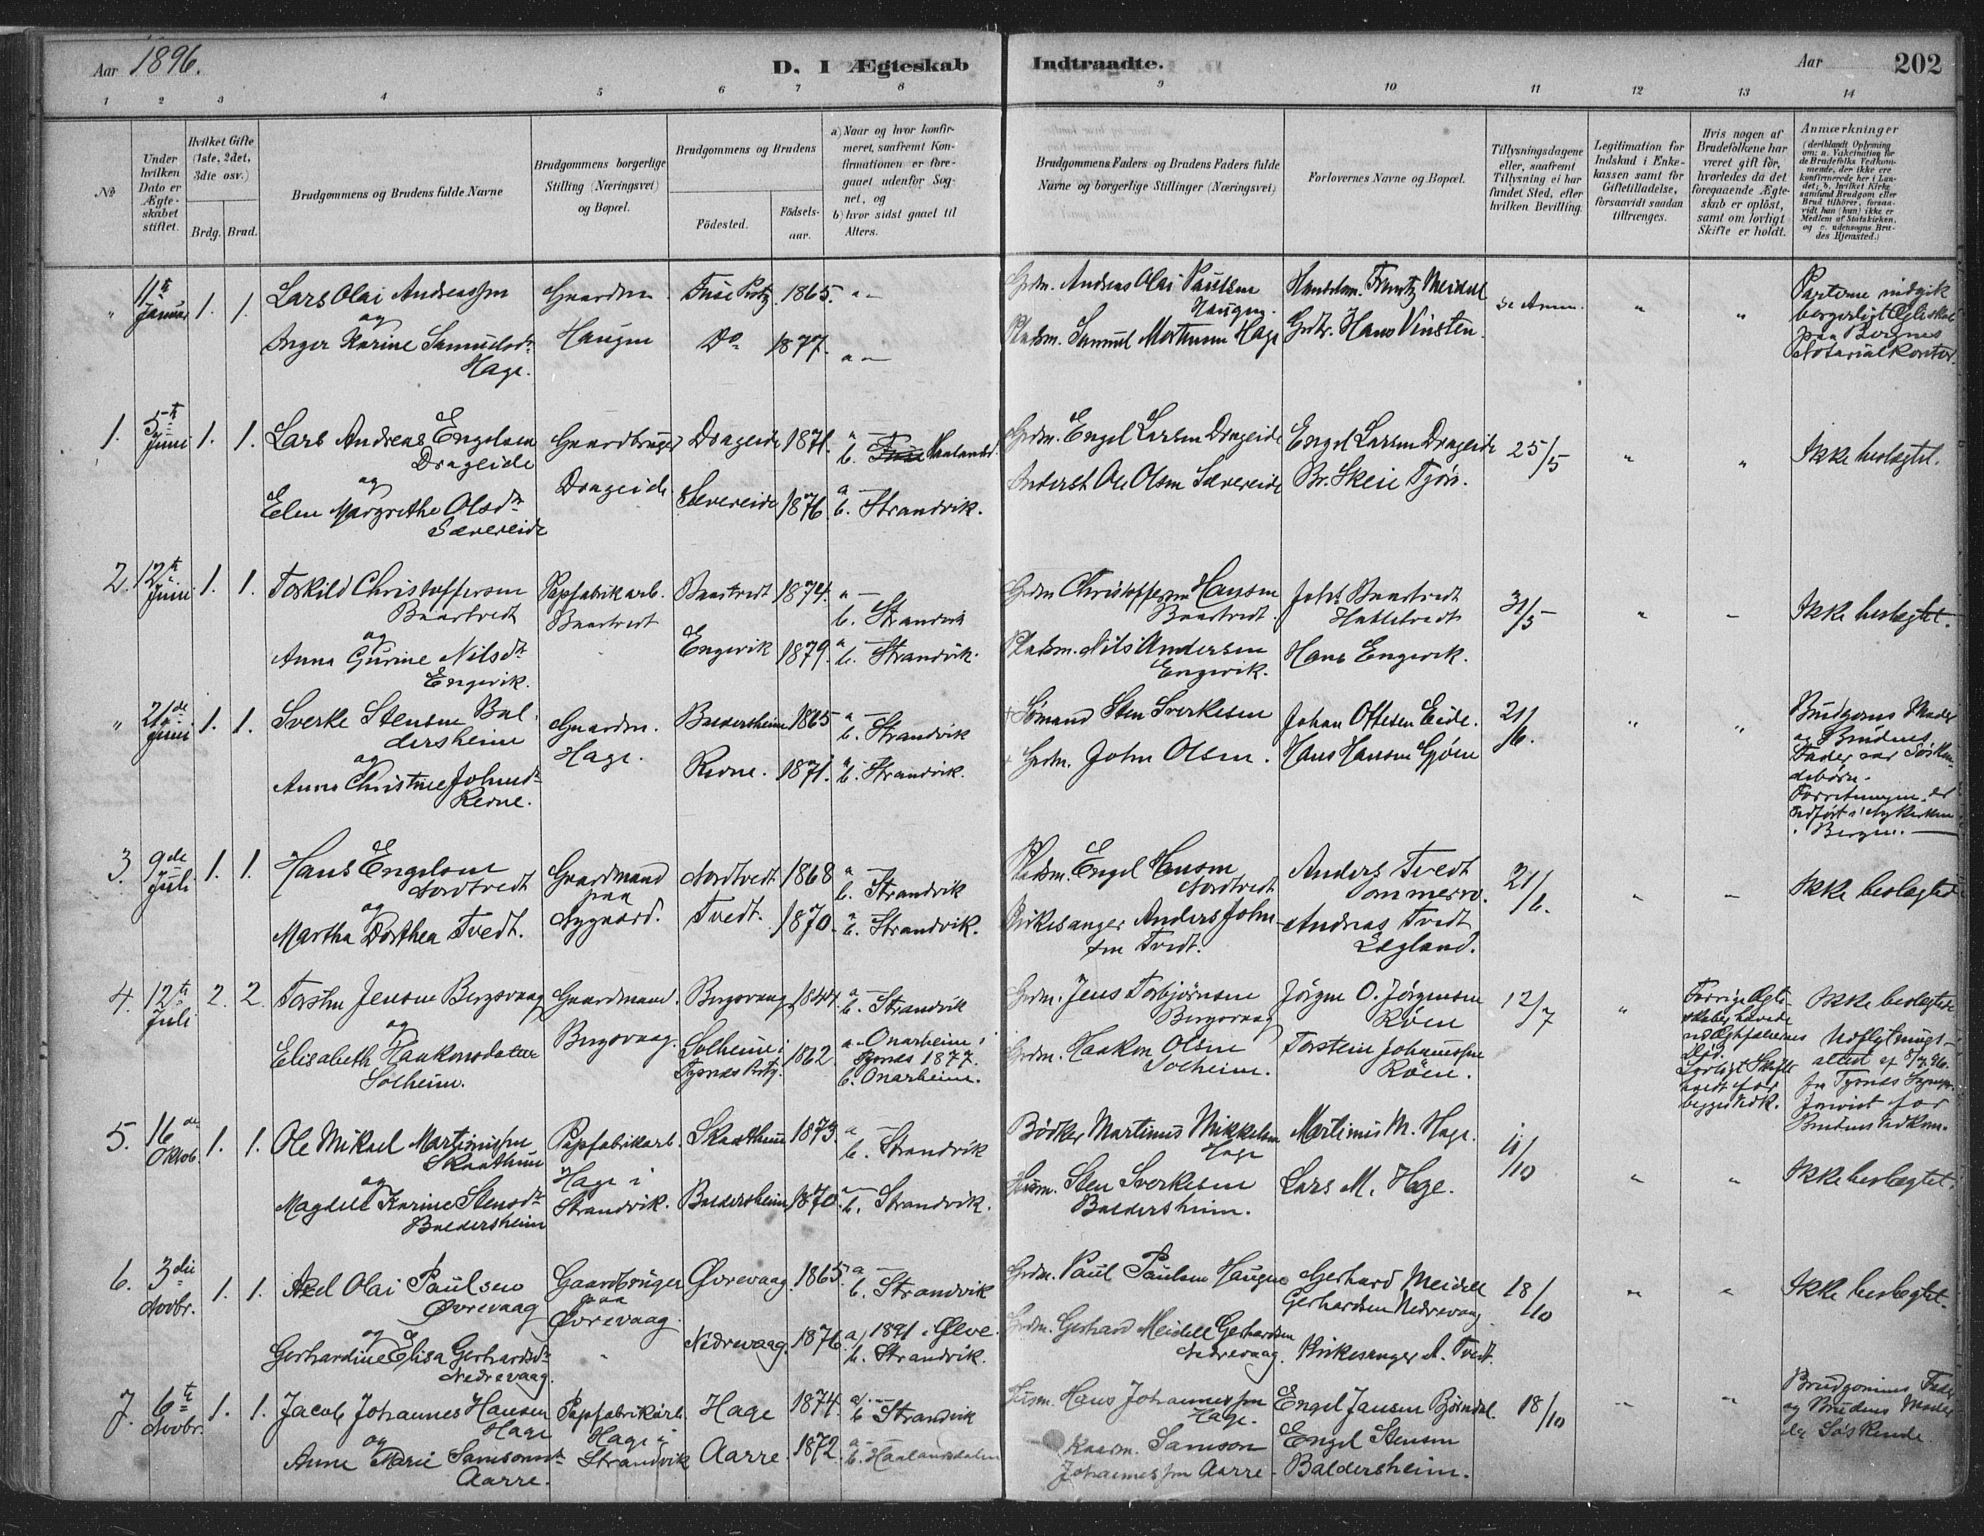 Aar 1896.
D. 1 Ægteskab Indtraadte.
Aar 202
1 2 3 4 5 6 7 8 9 10 11 12 13 14
No
Under hvilken Dato er Ægteskabet stiftet.
Hvilket Gifte (1ste, 2det, 3die osv.)
Brdg. Brud.
Brudgommens og Brudens fulde Navne
Brudgommens borgerlige Stilling (Næringsvei) og Bopæl.
Brudgommens og Brudens
Fødested.
Fødselsaar.
a) Naar og hvor konfirmeret, saafremt Konfirmationen er foregaaet udenfor Sognet, og
b) hvor sidst gaaet til Alters.
Brudgommens Faders og Brudens Faders fulde Navne og borgerlige Stillinger (Næringsvei)
Forlovernes Navne og Bopæl.
Tillysningsdagene eller, saafremt Tillysning ei har fundet Sted, efter hvilken Bevilling.
Legitimation for Indskud i Enkekassen samt for Giftetilladelse, forsaavidt saadan tiltrænges.
Hvis nogen af Brudefolkene har været gift før, hvorledes da det foregaaende Ægteskab er opløst, samt om lovligt Skifte er holdt.
Anmærkninger
(deriblandt Oplysning om: a. Vakcination for de Brudefolks Vedkommende, der ikke ere konfirmerede her i Landet; b. hvilket Kirkesamfund Brudgom eller Brud tilhører, forsaavidt han (hun) ikke er Medlem af Statskirken, og c. udensogns Brudes Hjemsted.)
" 11te Januar 1. 1. Lars Olai Andreassen
og
Anger Karine Samuelsdr
Hage.
Gaardm.
Haugen
Fuse Prstg 1865. a –
Do 1877. a –
Grdm. Andreas Olai Paulsen
Haugen.
Pladsm. Samuel Mortensen Hage
Handelsm. Frantz Meidell
Grdbr. Hans Vinsten.
se Anm. " "
Parterne indgik
borgerligt Ægteskab
paa Bergens
Notarialkontor.
1. 5te Juni 1. 1. Lars Andreas Engelsen
Drageide
og
Elen Margrethe Olsdr
Sævereide
Gaardbruger
Drageide
Drageide 1871. a –
b. Fuse Haalandsd.
Sævereide 1876. a –
b. Strandvik.
Grdm. Engel Larsen Drageide
Anderst Ole Olsen Sævereide
Engel Larsen Drageide
Br. Skeie Tjøn.
25/5 " " Ikke beslægtet.
2. 12te Juni 1. 1. Torkild Christoffersen
Baartvedt
og
Anna Gurine Nilsdr
Engevik.
Papfabrikarb.
Baartvedt
Baartvedt 1874. a –
b. Strandvik
Engevik 1879. a –
b. Strandvik.
Grdm Christoffer Hansen
Baartvedt.
Pladsm. Nils Andersen
Engevik.
Johs Baartvedt
Hatletvedt
Hans Engevik.
31/5 " – Ikke beslægtet.
" 21de Juni 1. 1. Sverke Stensen Baldersheim
og
Anna Christine Johnsdr
Revne.
Gaardm.
Hage.
Baldersheim 1865 a –
b. Strandvik
Revne. 1871. a –
b. Strandvik.
+ Sømand Sten Sverkesen
+ Grdm. John Olsen.
Johan Ottesen Eide.
Hans Hansen Gjøen
21/6. " "
Brudgoms Moder
og Brudens
Fader var Søskendebørn.
Forretningen er
indført i Nykirken
i Bergen. –
3. 9de Juli 1. 1. Hans Engelsen
Nordtvedt
og
Martha Dorthea Tvedt.
Gaardmand
paa
Nygaard.
Nordtvedt 1868 a –
b. Strandvik
Tvedt. 1870. a –
b. Strandvik.
Pladsm. Engel Hansen
Nordtvedt
Kirkesanger Anders Johnsen Tvedt.
Anders Tvedt
Ommersv.
Andreas Tvedt
Lægland.
21/6. " – Ikke beslægtet
4. 12te Juli 2. 2. Torsten Jensen Bergsvaag
og
Elisabeth Haakonsdatter
Solheim.
Gaardmand.
Bergsvaag.
Bergsvaag 1844. a –
b. Strandvik
Solheim i
Tysnæs Prstg. 1862. a. Onarheim i
Tysnæs 1877.
b. Onarheim.
Grdm. Jens Torbjørnsen
Bergsvaag
Grdm. Haakon Olsen
Solheim.
Jørgen O. Jørgensen
Røen
Torstein Johannessen
Røen.
12/7 "
Forrige Ægteskaber hævede
ved Ægtefællernes
Død.
Lovligt Skifte
holdt for
begges Vedk.
Ikke beslægtet
Udflytningsattest af 8/7 96.
fra Tysnæs Sognepr.
forevist for
Brudens Vedkom.
5. 16de Oktob. 1. 1. Ole Mikael Martinussen
Skaathun
og
Magdele Karine Stensdr
Baldersheim
Papfabrikarb.
Hage i
Strandvik.
Skaathun 1873. a –
b. Strandvik
Baldersheim 1870. a –
b. Strandvik.
Bødker Martinus Mikkelsen
Hage
Husm. Sten Sverkesen
Baldersheim.
Martinus M. Hage.
Lars M. Hage.
11/10 " " Ikke beslægtet.
6. 3die Novbr. 1. 1. Axel Olai Paulsen
Øvrevaag
og
Gerhardine Elisa Gerhardsdr
Nedrevaag.
Gaardbruger
paa
Øvrevaag.
Øvrevaag. 1865. a –
b. Strandvik
Nedrevaag. 1876. a) 1891 i Ølve.
b. Strandvik.
Grdm. Paul Paulsen Haugen
Grdm. Gerhard Meidell Gerhardsen
Nedrevaag.
Gerhard Meidell
Gerhardsen Nedrevaag
Kirkesanger A. Tvedt.
18/10 " " Ikke beslægtet.
7. 6te Novbr. 1. 1. Jacob Johannes Hansen
Hage
og
Anne Marie Samsonsdr
Aarre.
Papfabrikarb.
Hage i
Strandvik
Hage 1874. a) –
b. Strandvik
Aarre. 1872. a –
b. Haalandsdalen
Husm. Hans Johannessen
Hage.
Kaarm. Samson
Johannessen Aarre.
Engel Jansen Bjørndal.
Engel Stensen
Baldersheim.
18/10 " "
Brudgommens Fader
og Brudens Moder
er Søskende.